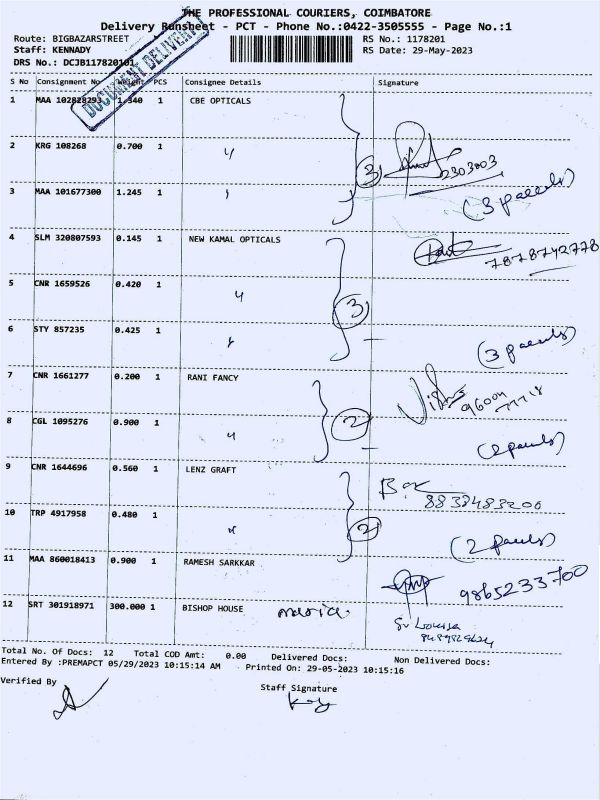 THE PROFESSIONAL COURIERS, COIMBATORE
Delivery Runsheet - PCT - Phone No.:0422-3505555 - Page No.:1
Route: BIGBAZARSTREET RS No.: 1178201
Staff: KENNADY RS Date: 29-May-2023
DRS No.: DCJB117820101
DOCUMENT DELIVERY
S No Consignment No Weight PCS Consignee Details Signature
1 MAA 102828293 1.340 1 CBE OPTICALS
2 KRG 108268 0.700 1 〃
3 2303003
3 MAA 101677300 1.245 1 〃
(3 parcels)
4 SLM 320807593 0.145 1 NEW KAMAL OPTICALS
7878742778
5 CNR 1659526 0.420 1 〃
3
6 STY 857235 0.425 1 〃
(3 parcels)
7 CNR 1661277 0.200 1 RANI FANCY
8 CGL 1095276 0.900 1 〃
2
(2 parcels)
9 CNR 1644696 0.560 1 LENZ GRAFT
10 TRP 4917958 0.480 1 〃
2
(2 parcels)
11 MAA 860018413 0.900 1 RAMESH SARKKAR
9865233700
12 SRT 301918971 300.000 1 BISHOP HOUSE
Total No. Of Docs: 12 Total COD Amt: 0.00 Delivered Docs: Non Delivered Docs:
Entered By :PREMAPCT 05/29/2023 10:15:14 AM Printed On: 29-05-2023 10:15:16
Verified By Staff Signature